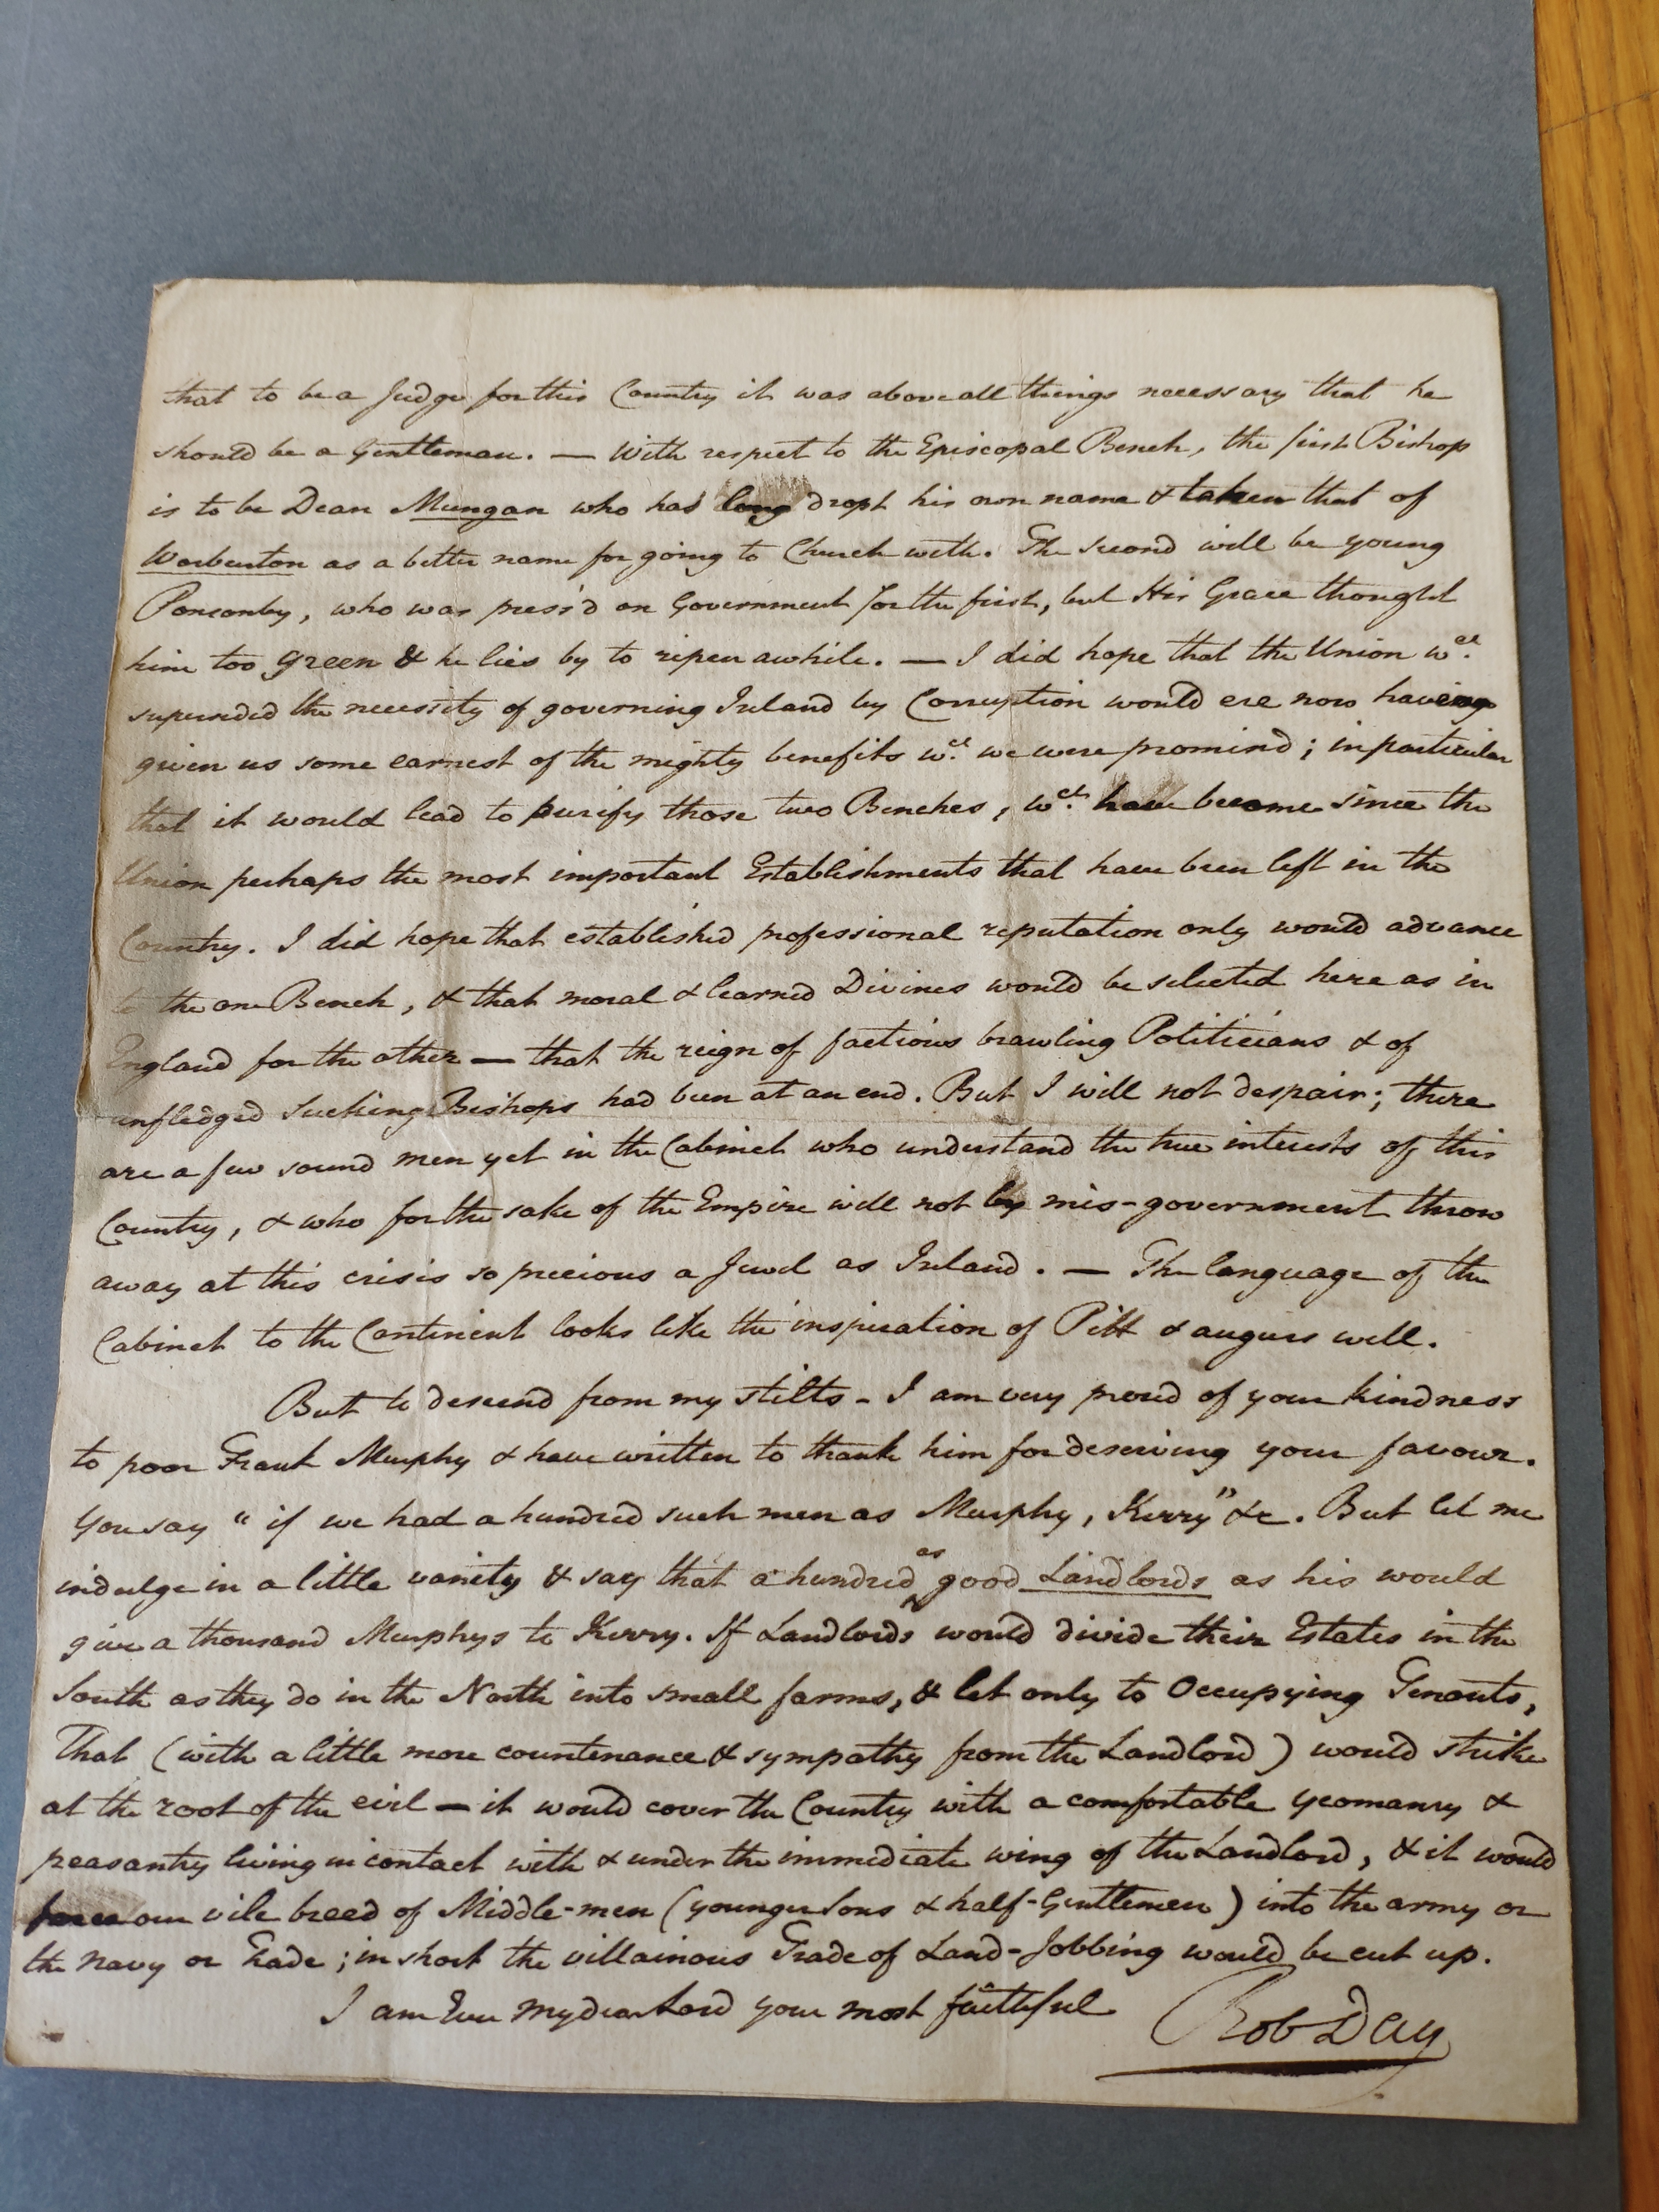 that to be a Judge for this Country it was above all things necessary that he
should be a Gentleman. — With respect to the Episcopal Bench, the first Bishop
is to be Dean Mungan who has long dropt his own name & taken that of
Warburton as a better name for going to Church with. The second will be young
Ponsonby, who was press'd on Government for the first, but His Grace thought
him too green & he lies by to ripen awhile. — I did hope that the Union wch.
superseded the necessity of governing Ireland by Corruption would ere now have
given us some earnest of the mighty benefits wch. we were promised; in particular
that it would lead to purify those two Benches, wch. have become since the
Union perhaps the most important Establishments that have been left in the
Country. I did hope that established professional reputation only would advance
to the one Bench, & that moral & learned Divines would be selected here as in
England for the other — that the reign of factious brawling Politicians & of
unfledged Sucking Bishops had been at an end. But I will not despair; there
are a few sound men yet in the Cabinet who understand the true interests of this
Country, & who for the sake of the Empire will not by mis-government throw
away at this crisis so precious a Jewel as Ireland. — The language of the
Cabinet to the Continent looks like the inspiration of Pitt & augurs well.
But to descend from my stilts - I am very proud of your kindness
to poor Frank Murphy & have written to thank him for deserving your favour.
You say "if we had a hundred such men as Murphy, Kerry" &c. But let me
indulge in a little vanity & say that a hundred as good Landlords as his would
give a thousand Murphys to Kerry. If Landlords would divide their Estates in the
South as they do in the North into small farms, & let only to Occupying Tenants,
That (with a little more countenance & sympathy from the Landlord) would strike
at the root of the evil — it would cover the Country with a comfortable yeomanry &
peasantry living in contact with & under the immediate wing of the Landlord, & it would
force our vile breed of Middle-men (younger Sons & half-Gentlemen) into the army or
the navy or Trade; in short the villainous Trade of Land-Jobbing would be cut up.
I am Ever My dear Lord your most faithful Rob Day